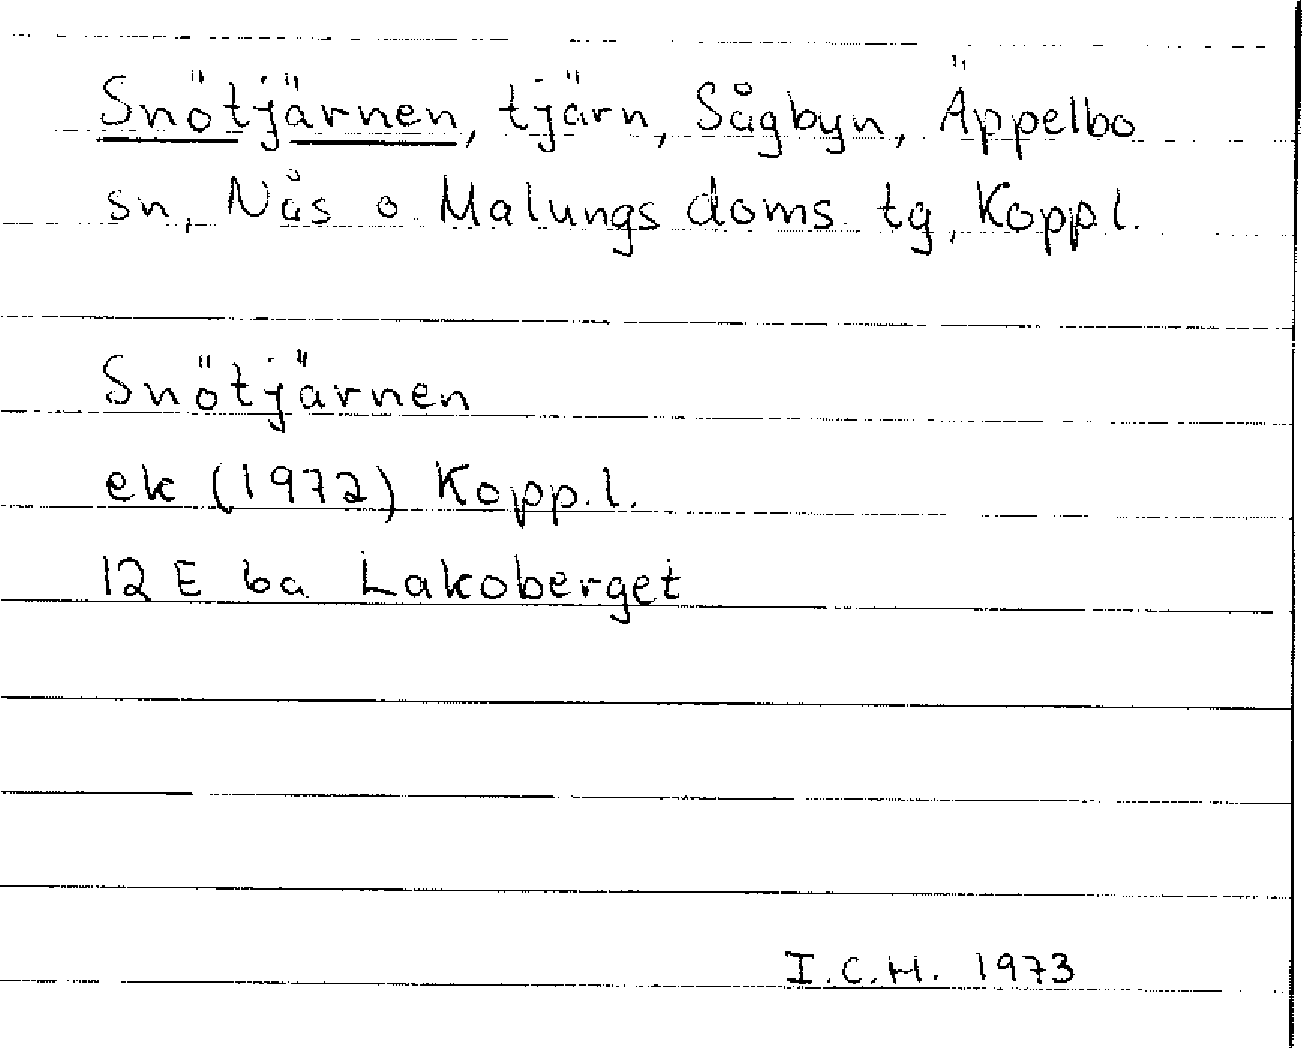 Snötjärnen, tjärn, Sågbyn, Äppelbo
sn, Nås o Malungs doms tg, Koppl.
Snötjärnen
ek (1972) Kopp.l.
12 E ba Lakoberget
I.C.H. 1973